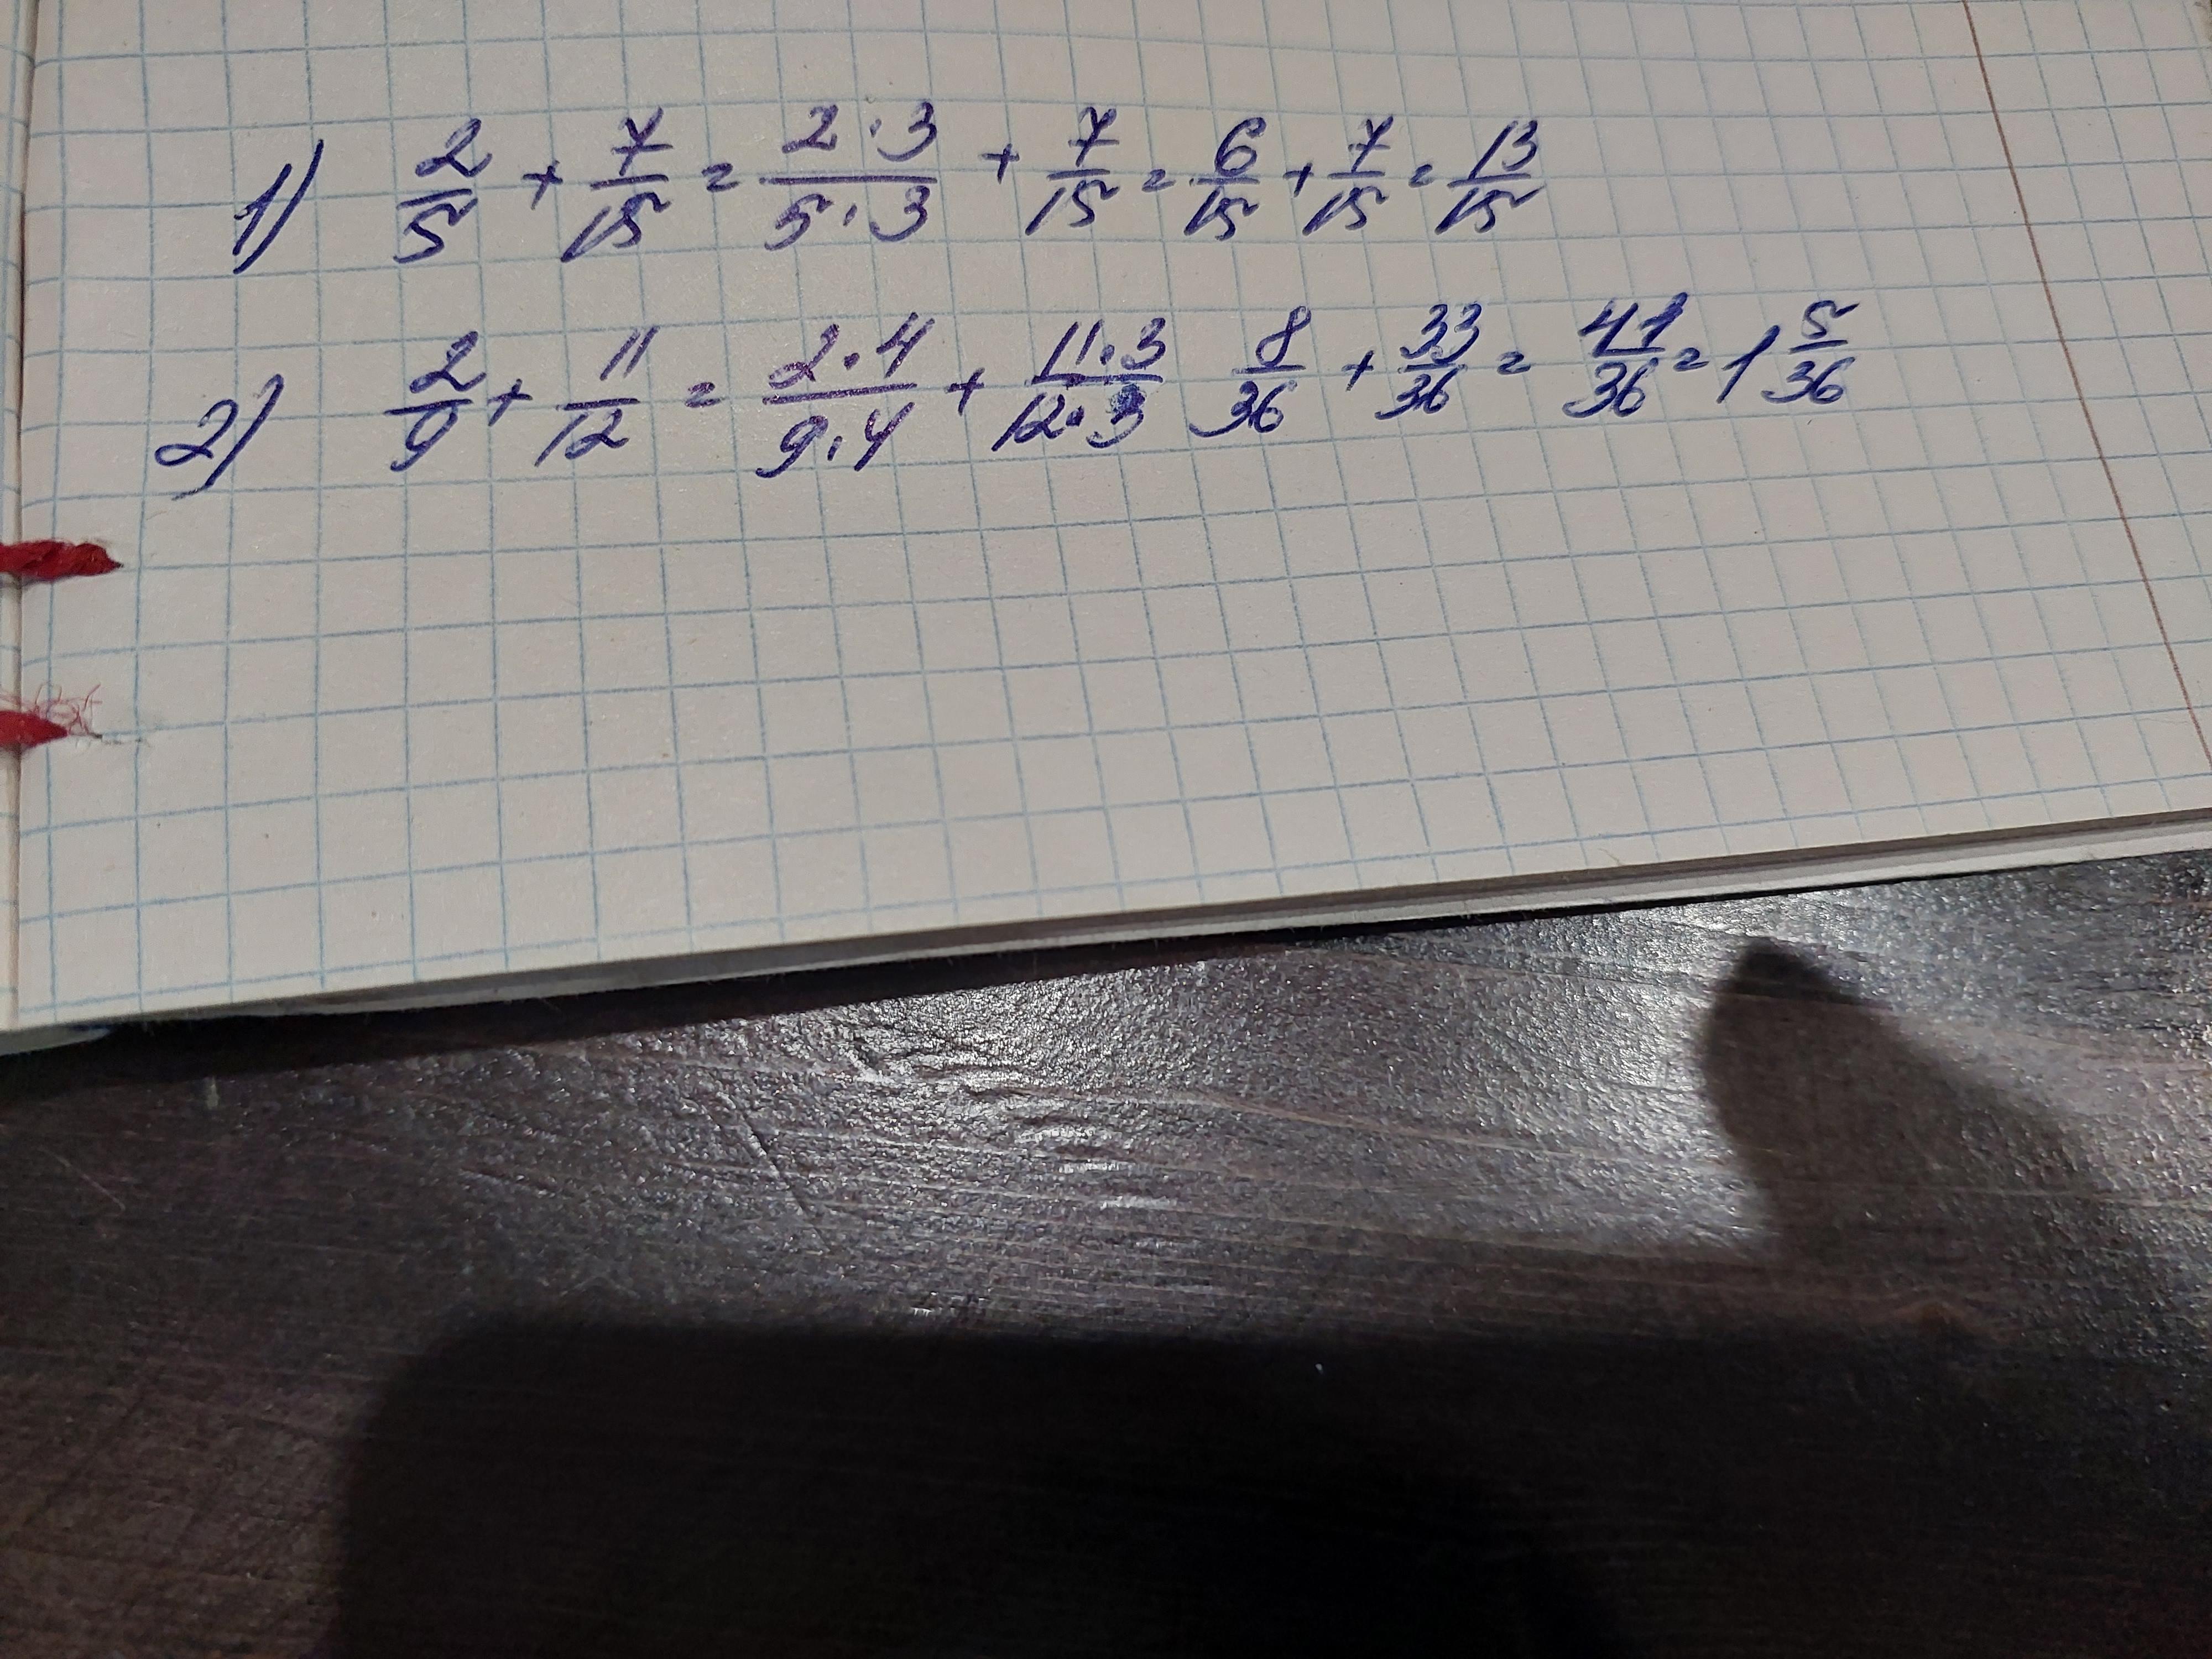 1) 2/5 + 7/15 = 2·3/5·3 + 7/15 = 6/15 + 7/15 = 13/15
2) 2/9 + 11/12 = 2·4/9·4 + 11·3/12·3 8/36 + 33/36 = 41/36 = 1 5/36